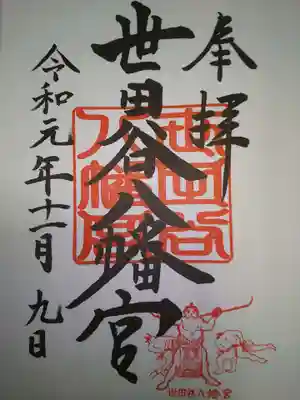 奉拝
世田谷八幡宮
世田谷八幡宮
令和元年十一月 九日
世田谷八幡宮